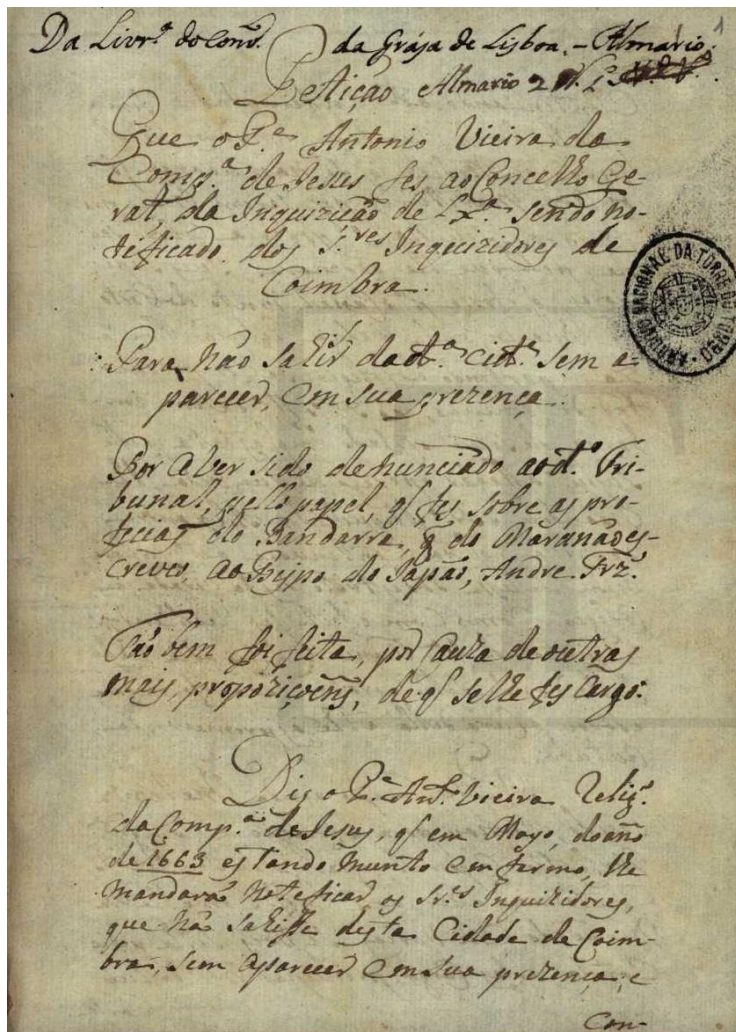 Da Livrª. do Conv. da Graça de Lisboa. - Almario.
1
Petição Almario 2 N.
Que o P.e Antonio Vieira da
Comp.ª de Jesus fes ao Concelho Ge-
ral, da Inquizição de Lxª. sendo no-
teficado dos S.res Inquizidores de
Coimbra.
Para não sahir da d.ª cid.e sem a-
parecer, em sua prezença.
Por aver sido denunciado ao d.º Tri-
bunal, pello papel, q fes sobre as pro-
fecias do Bandarra, q do Maranão es-
creveo, ao Bispo do Japão, Andre Frz.
Tão bem foi feita, por cauza de outras
mais, propoziçoẽns, de q se lhe fes cargo:
Dis o P.e Ant.º Vieira Relig.º
da Comp.ª de Jesus, q em Mayo, do año
de 1663 estando munto emfermo, lhe
mandarão noteficar os Sr.es Inquizidores,
que não sahisse desta Cidade de Coim-
bra, sem aparecer em sua prezença, e
Con-
ARQUIVO NACIONAL DA TORRE DO TOMBO